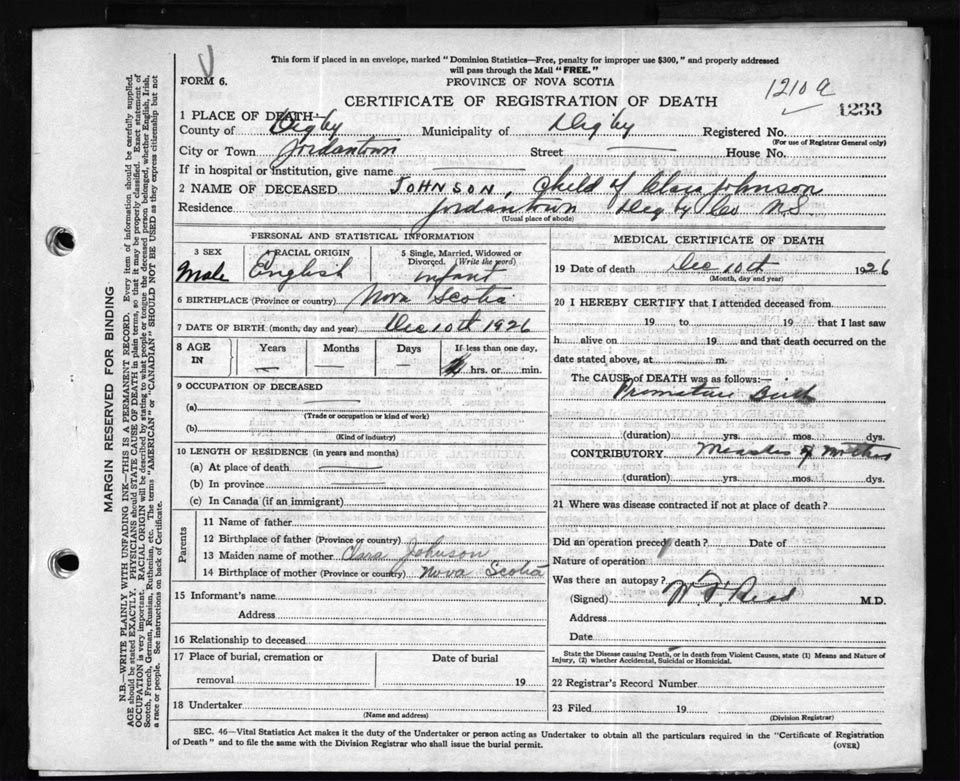 This form if placed in an envelope, marked "Dominion Statistics—Free, penalty for improper use $300," and properly addressed
will pass through the Mail "FREE."
FORM 6.
PROVINCE OF NOVA SCOTIA
1210 a
CERTIFICATE OF REGISTRATION OF DEATH
1233
1 PLACE OF DEATH—
County of Digby Municipality of Digby Registered No.
(For use of Registrar General only)
City or Town Jordantown Street — House No.
If in hospital or institution, give name —
2 NAME OF DECEASED JOHNSON, Child of Clara Johnson
Residence Jordantown Digby Co N.S.
(Usual place of abode)
PERSONAL AND STATISTICAL INFORMATION
3 SEX
Male
4 RACIAL ORIGIN
English
5 Single, Married, Widowed or
Divorced. (Write the word)
infant
6 BIRTHPLACE (Province or country) Nova Scotia
7 DATE OF BIRTH (month, day and year) Dec 10th 1926
8 AGE
IN
Years
—
Months
—
Days
—
If less than one day,
hrs. or min.
9 OCCUPATION OF DECEASED
(a) —
(Trade or occupation or kind of work)
(b)
(Kind of industry)
10 LENGTH OF RESIDENCE (in years and months)
(a) At place of death —
(b) In province —
(c) In Canada (if an immigrant)
Parents
11 Name of father
12 Birthplace of father (Province or country)
13 Maiden name of mother Clara Johnson
14 Birthplace of mother (Province or country) Nova Scotia
15 Informant's name
Address
16 Relationship to deceased
17 Place of burial, cremation or
removal
Date of burial
19
18 Undertaker
(Name and address)
MEDICAL CERTIFICATE OF DEATH
19 Date of death Dec 10th 1926
(Month, day and year)
20 I HEREBY CERTIFY that I attended deceased from
19 to 19 that I last saw
h alive on 19 and that death occurred on the
date stated above, at m.
The CAUSE of DEATH was as follows:—
Premature Birth
(duration) yrs. mos. dys.
CONTRIBUTORY Measles of Mother
(duration) yrs. mos. dys.
21 Where was disease contracted if not at place of death?
Did an operation preced death? Date of
Nature of operation
Was there an autopay?
(Signed) M.D.
Address
Date
State the Disease causing Death, or in death from Violent Causes, state (1) Means and Nature of
Injury, (2) whether Accidental, Suicidal or Homicidal.
22 Registrar's Record Number
23 Filed 19
(Division Registrar)
SEC. 46—Vital Statistics Act makes it the duty of the Undertaker or person acting as Undertaker to obtain all the particulars required in the "Certificate of Registration
of Death" and to file the same with the Division Registrar who shall issue the burial permit.
(OVER)
MARGIN RESERVED FOR BINDING
N.B.—WRITE PLAINLY WITH UNFADING INK—THIS IS A PERMANENT RECORD. Every item of information should be carefully supplied.
AGE should be stated EXACTLY. PHYSICIANS should STATE CAUSE OF DEATH in plain terms, so that it may be properly classified. Exact statement of
OCCUPATION is very important. RACIAL ORIGIN will be described by stating to what people or tongue the deceased person belonged, whether English, Irish,
Scotch, French, German, Russian, Ruthenian, etc. The terms "AMERICAN" or "CANADIAN" SHOULD NOT BE USED as they express citizenship but not
a race or people. See instructions on back of Certificate.